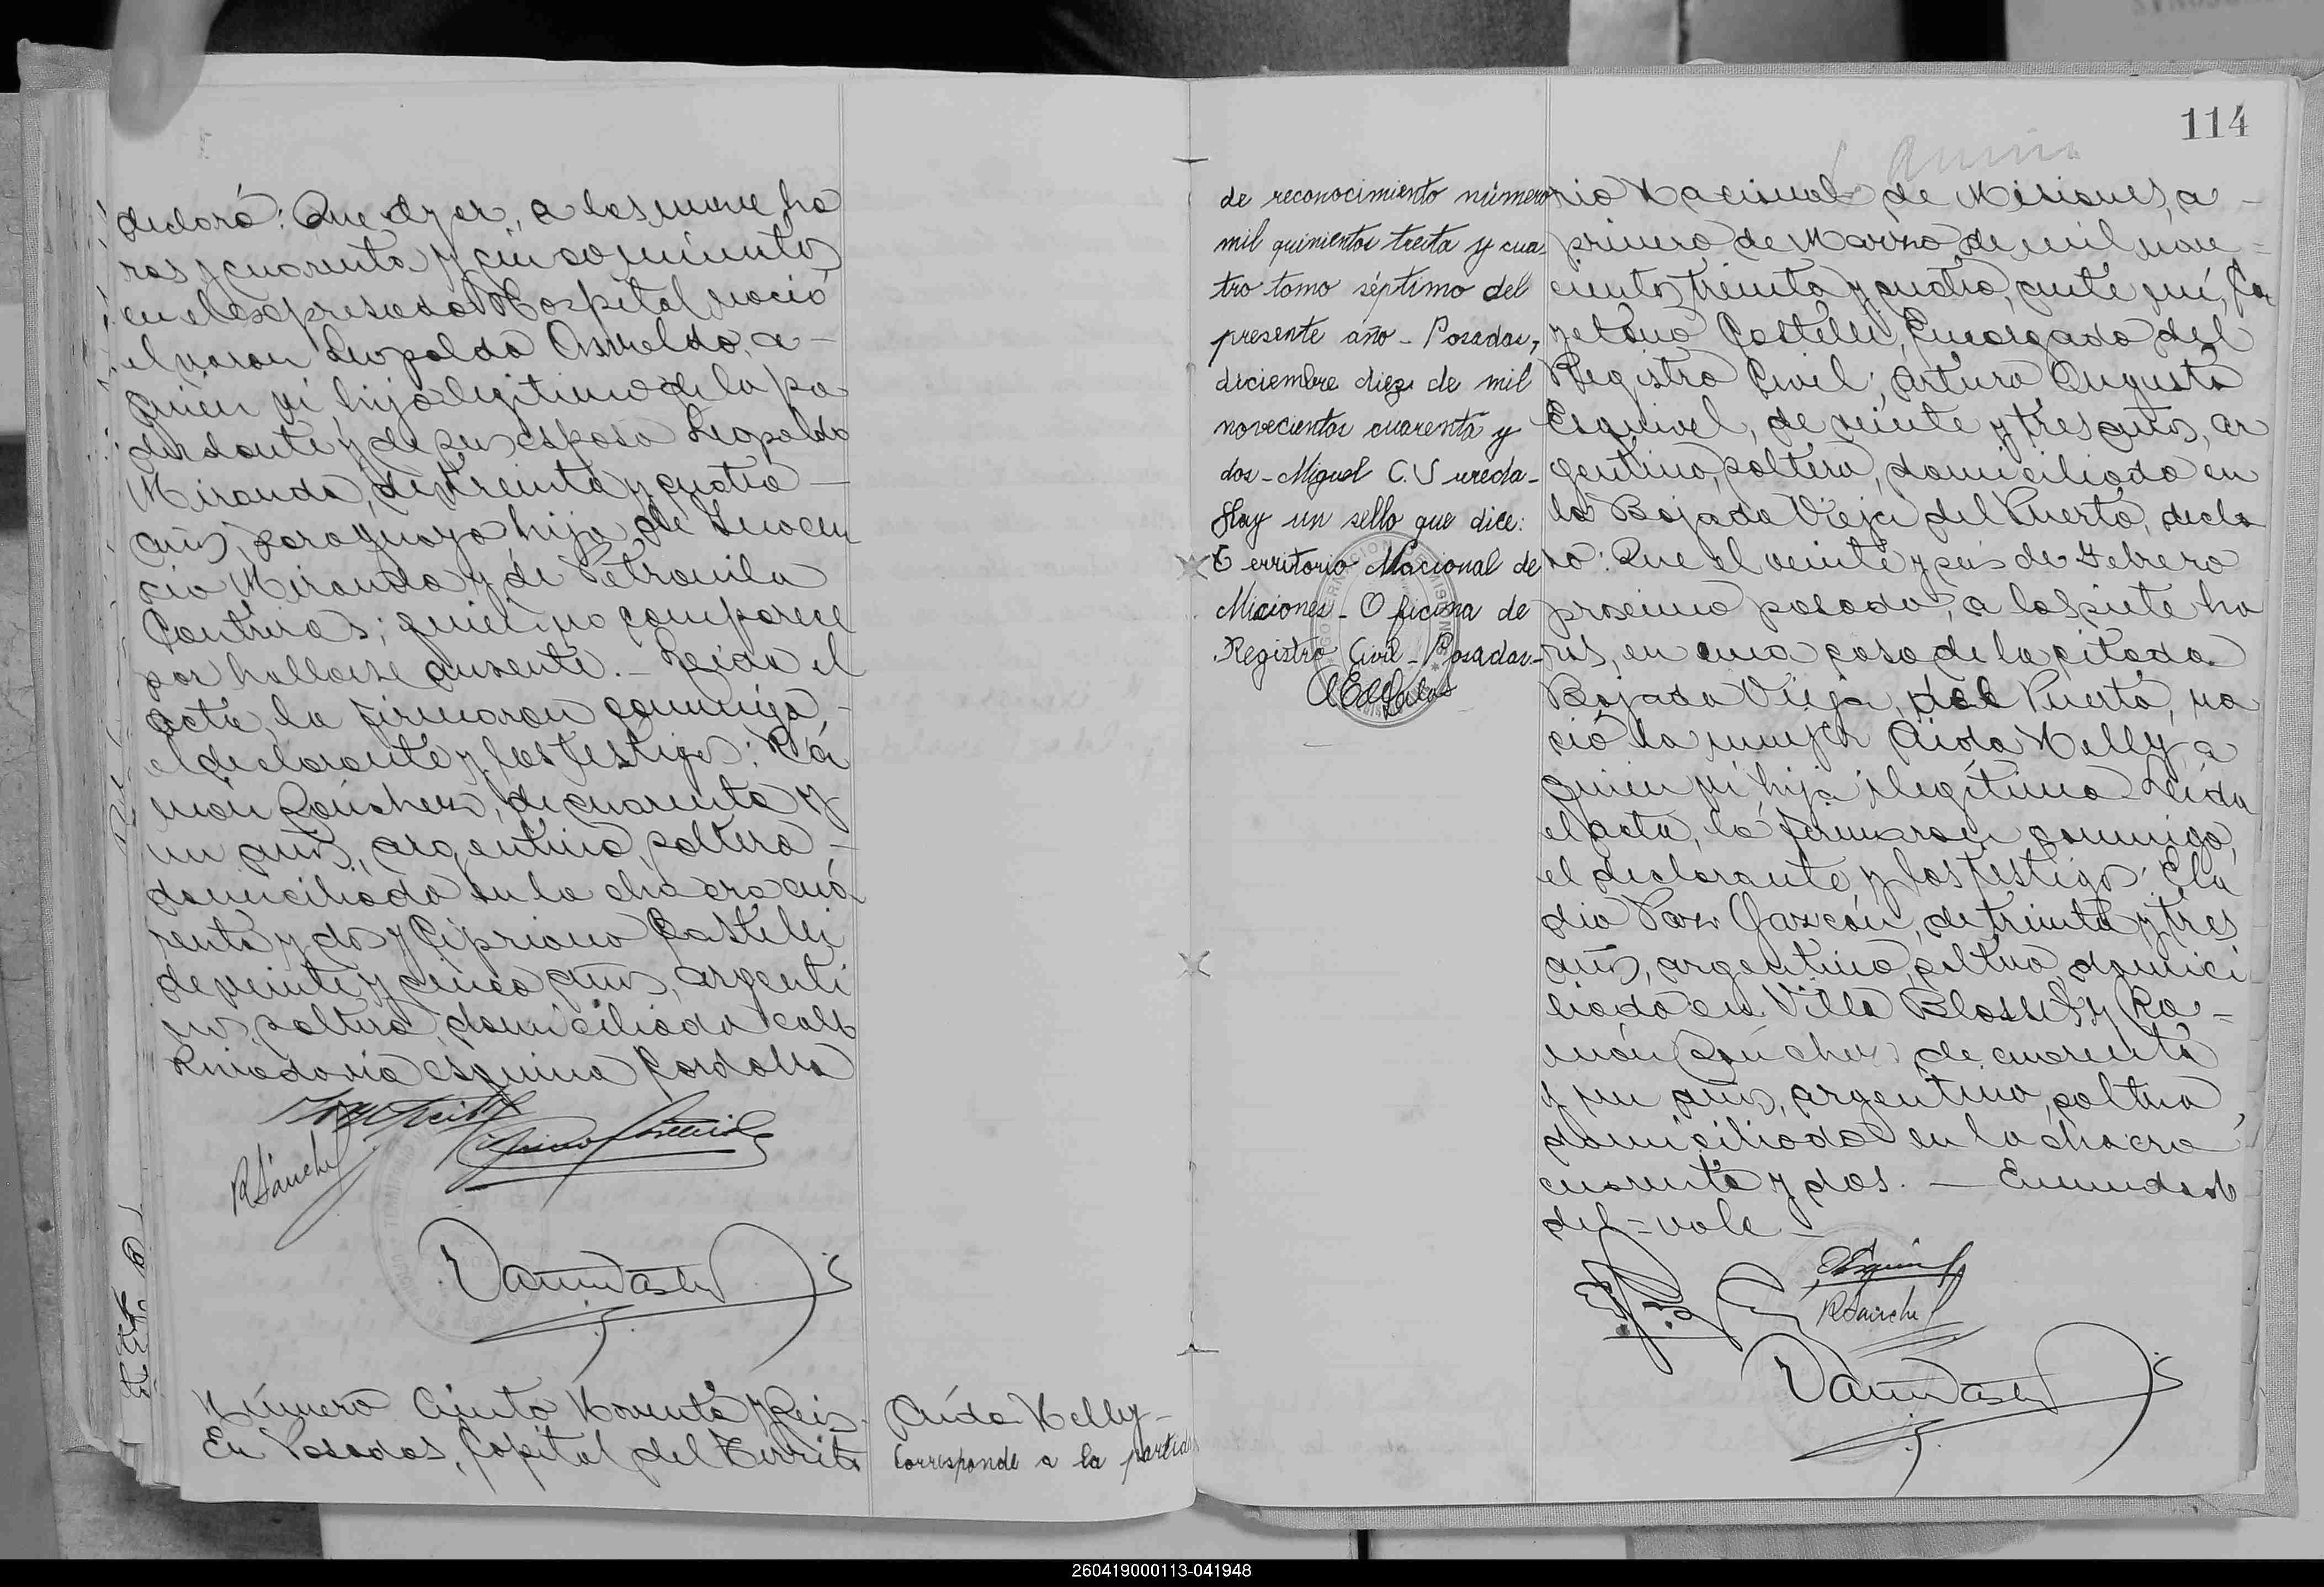 declaró: Que ayer, a las nueve ho
ras y cuarenta y cinco minutos
en el expresado Hospital nació
el varon Leopoldo Osvaldo, a -
quien vi hijo legitimo de la pa
declarante y de su esposo Leopoldo
Miranda, de treinta y cuatro -
años, paraguayo hijo de Inocen
cio Miranda y de Petronila
Contreras; quien no comparece
por hallarse ausente. - Leida el
acta, la firmaron conmigo,
el declarante y los testigos: Ra
món Sánchez, de cuarenta y
un años, argentino, soltero -
domiciliado en la chacra cua
renta y dos y Cipriano Castelli
de veinte y cinco años, argenti
no, soltero, domiciliado calle
Rivadavia esquina Cordoba
RSánchez
Número Ciento Noventa y Seis -
En Posadas, Capital del Territo
Aída Nelly -
Corresponde a la partida
114
de reconocimiento número
mil quinientos treita y cua-
tro tomo séptimo del
presente año - Posadas,
diciembre diez de mil
novecientos cuarenta y
dos - Miguel C. Ureda -
Hay un sello que dice:
Territorio Nacional de
Misiones - Oficina de
Registro Civil - Posadas -
rio Nacional de Misiones, a -
primero de Marzo de mil nove -
cientos treinta y cuatro, ante mí, Ca
yetano Castelli, Encargado del
Registro Civil; Arturo Augusto
Esquivel, de veinte y tres años, ar
gentino, soltero, domiciliado en
la Bajada Vieja del Puerto, decla
ró: Que el veinte y seis de Febrero
proximo pasado, a las siete ho
ras, en una casa de la citada
Bajada Vieja, del Puerto, na
ció la mujer Aida Nelly, a
quien vi hija ilegítima. Leida
el acta, la firmaron conmigo,
el declarante y los testigos: Ela
dio Paz Gazcón, de treinta y tres
años, argentino, soltero, domici
liado en Villa Blosset, y Ra -
món Sánchez, de cuarenta
y un años, argentino, soltero,
domiciliado en la chacra
cuarenta y dos. - Enmendado
del - vale -
AEsquivel
RSánchez
260419000113-041948